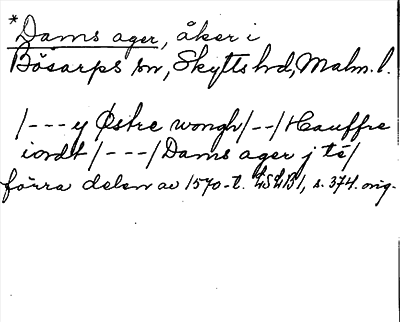 *Dams ager, åker i
Bösarps sn, Skytts hd, Malm. l.
/---y Østre wongh/--/Hauffre
iordt/---/Dams ager j té/
förra delen av 1570-t. LSLB1, s. 374. orig.